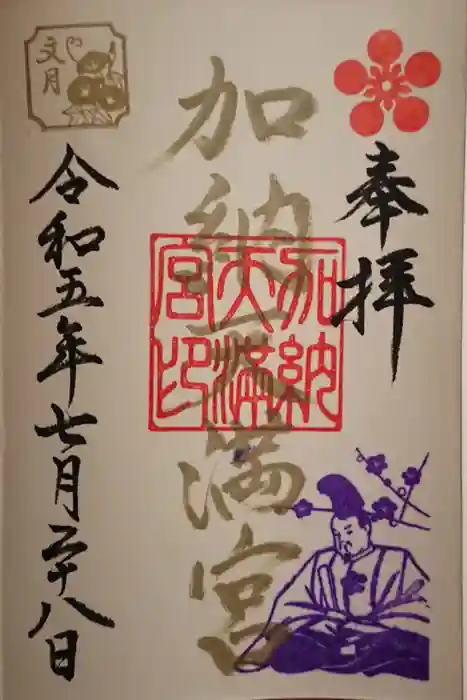 奉拝
加納天満宮
加納天満宮印
令和五年七月二十八日
文月